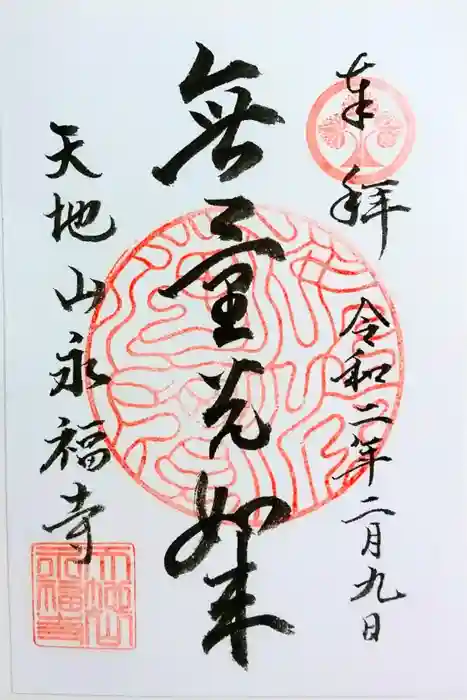 奉拝
令和二年二月九日
無量光如来
天地山永福寺